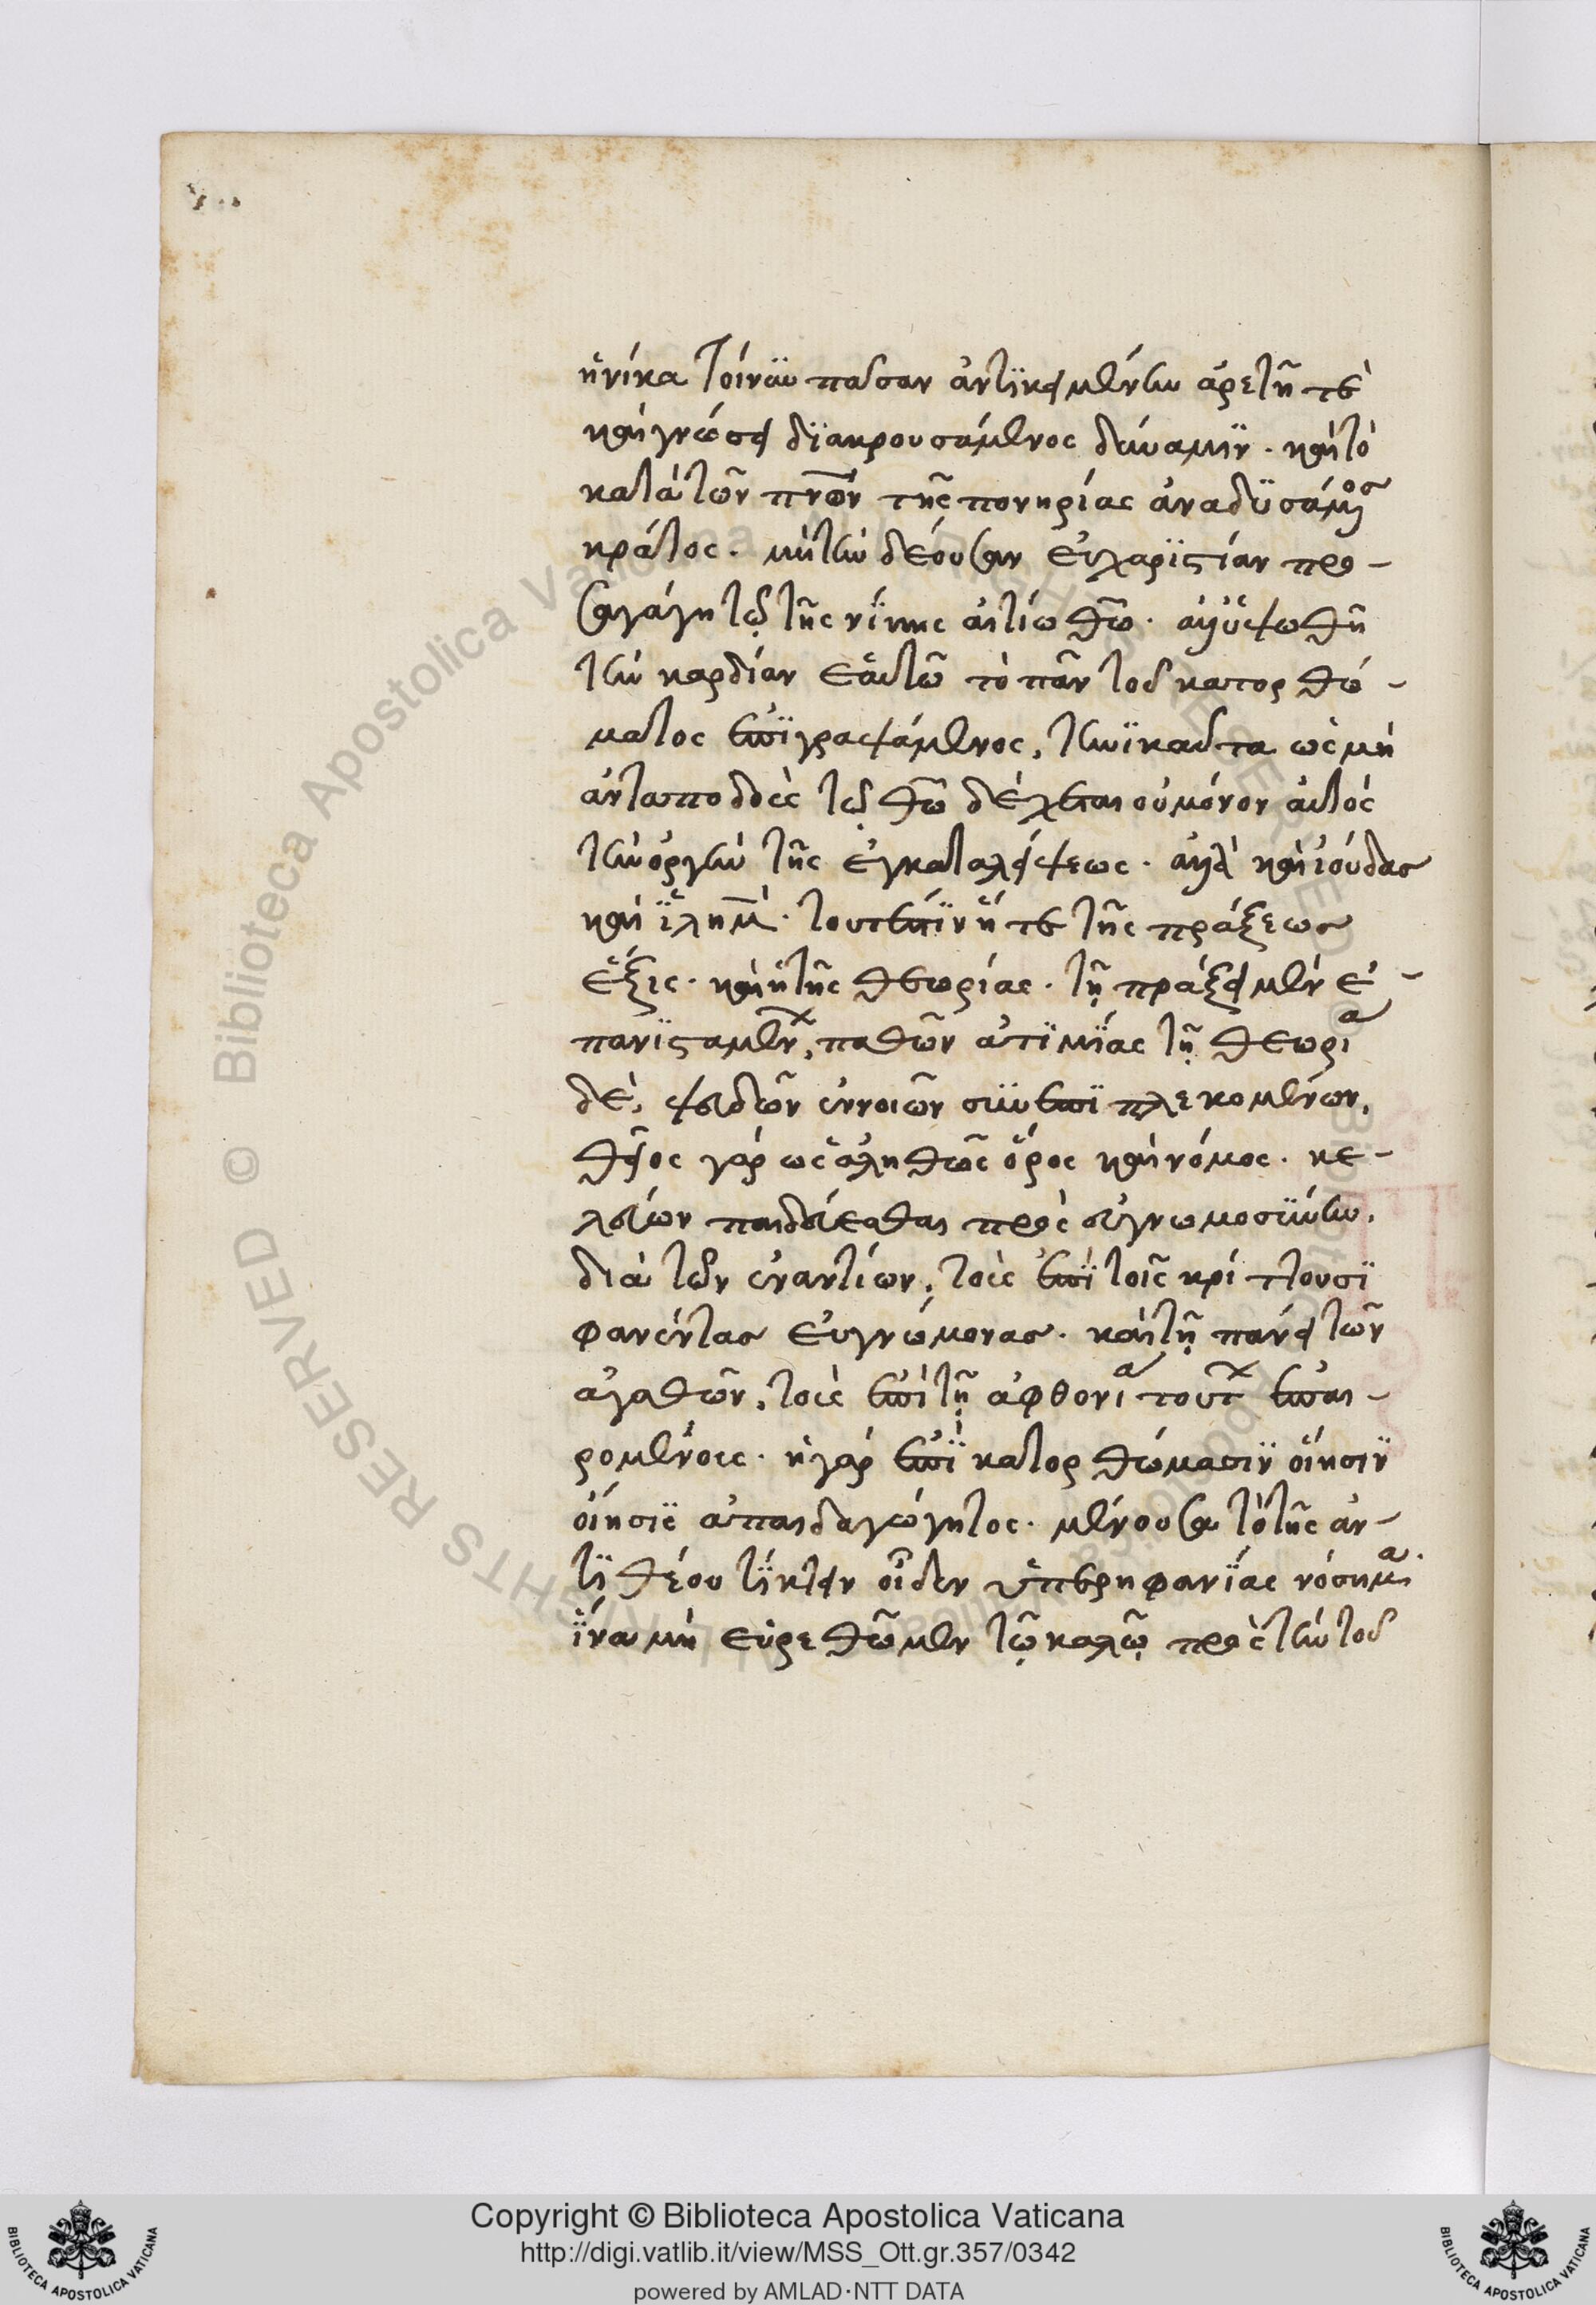 ἡνίκα τοίνυν πᾶσαν ἀντικειμένην ἀρετῇ τὲ
καὶ γνώσει διακρουσάμενος δύναμιν. καὶ τὸ
κατὰ τῶν πνων τῆς πονηρίας ἀναδυσάμενος
κράτος. μὴ τὴν δέουσαν εὐχαριστίαν προ-
σαγάγῃ τῷ τῆς νίκης αἰτίω θῶ. ἀλλ' ὑψωθῆ
τὴν καρδίαν ἑαυτῶ τὸ πᾶν τοῦ κατορθώ-
ματος ἐπιγραψάμενος, τηνικαῦτα ὡς μὴ
ἀνταποδοὺς τῷ θῶ δέχεται οὐ μόνον αὐτὸς
τὴν ὀργὴν τῆς ἐγκαταλείψεως. ἀλλὰ καὶ ἰούδας
καὶ ἱλημ. τουτέστιν ἥ τε τῆς πράξεως
ἕξις. καὶ ἡ τῆς θεωρίας. τῇ πράξει μὲν ἐ-
πανισταμένων, παθῶν ἀτιμίας τῇ θεωρία
δὲ, ψευδῶν ἐννοιῶν συνεπιπλεκομένων,
θεῖος γάρ ὡς ἀληθῶς ὅρος καὶ νόμος. κε-
λεύων παιδεύεσθαι πρὸς εὐγνωμοσύνην,
διὰ τῶν ἐναντίων, τοὺς ἐπὶ τοῖς κρίττουσι
φανέντας εὐγνώμονας. καὶ τῇ πάνει τῶν
ἀγαθῶν, τοὺς ἐπὶ τῇ ἀφθονία τούτων ἐπαι-
ρομένους. ἡ γὰρ ἐπὶ κατορθώμασιν οἴησιν
οἴησις ἀπαιδαγώγητος. μένουσα τὸ τῆς ἀν-
τιθέου τίκτειν οἶδεν ὑπερηφανίας νόσημα.
ἵνα μὴ εὑρεθῶμεν τῷ καλῷ πρὸς τὴν τοῦ
Copyright © Biblioteca Apostolica Vaticana
http://digi.vatlib.it/view/MSS_Ott.gr.357/0342
powered by AMLAD·NTT DATA